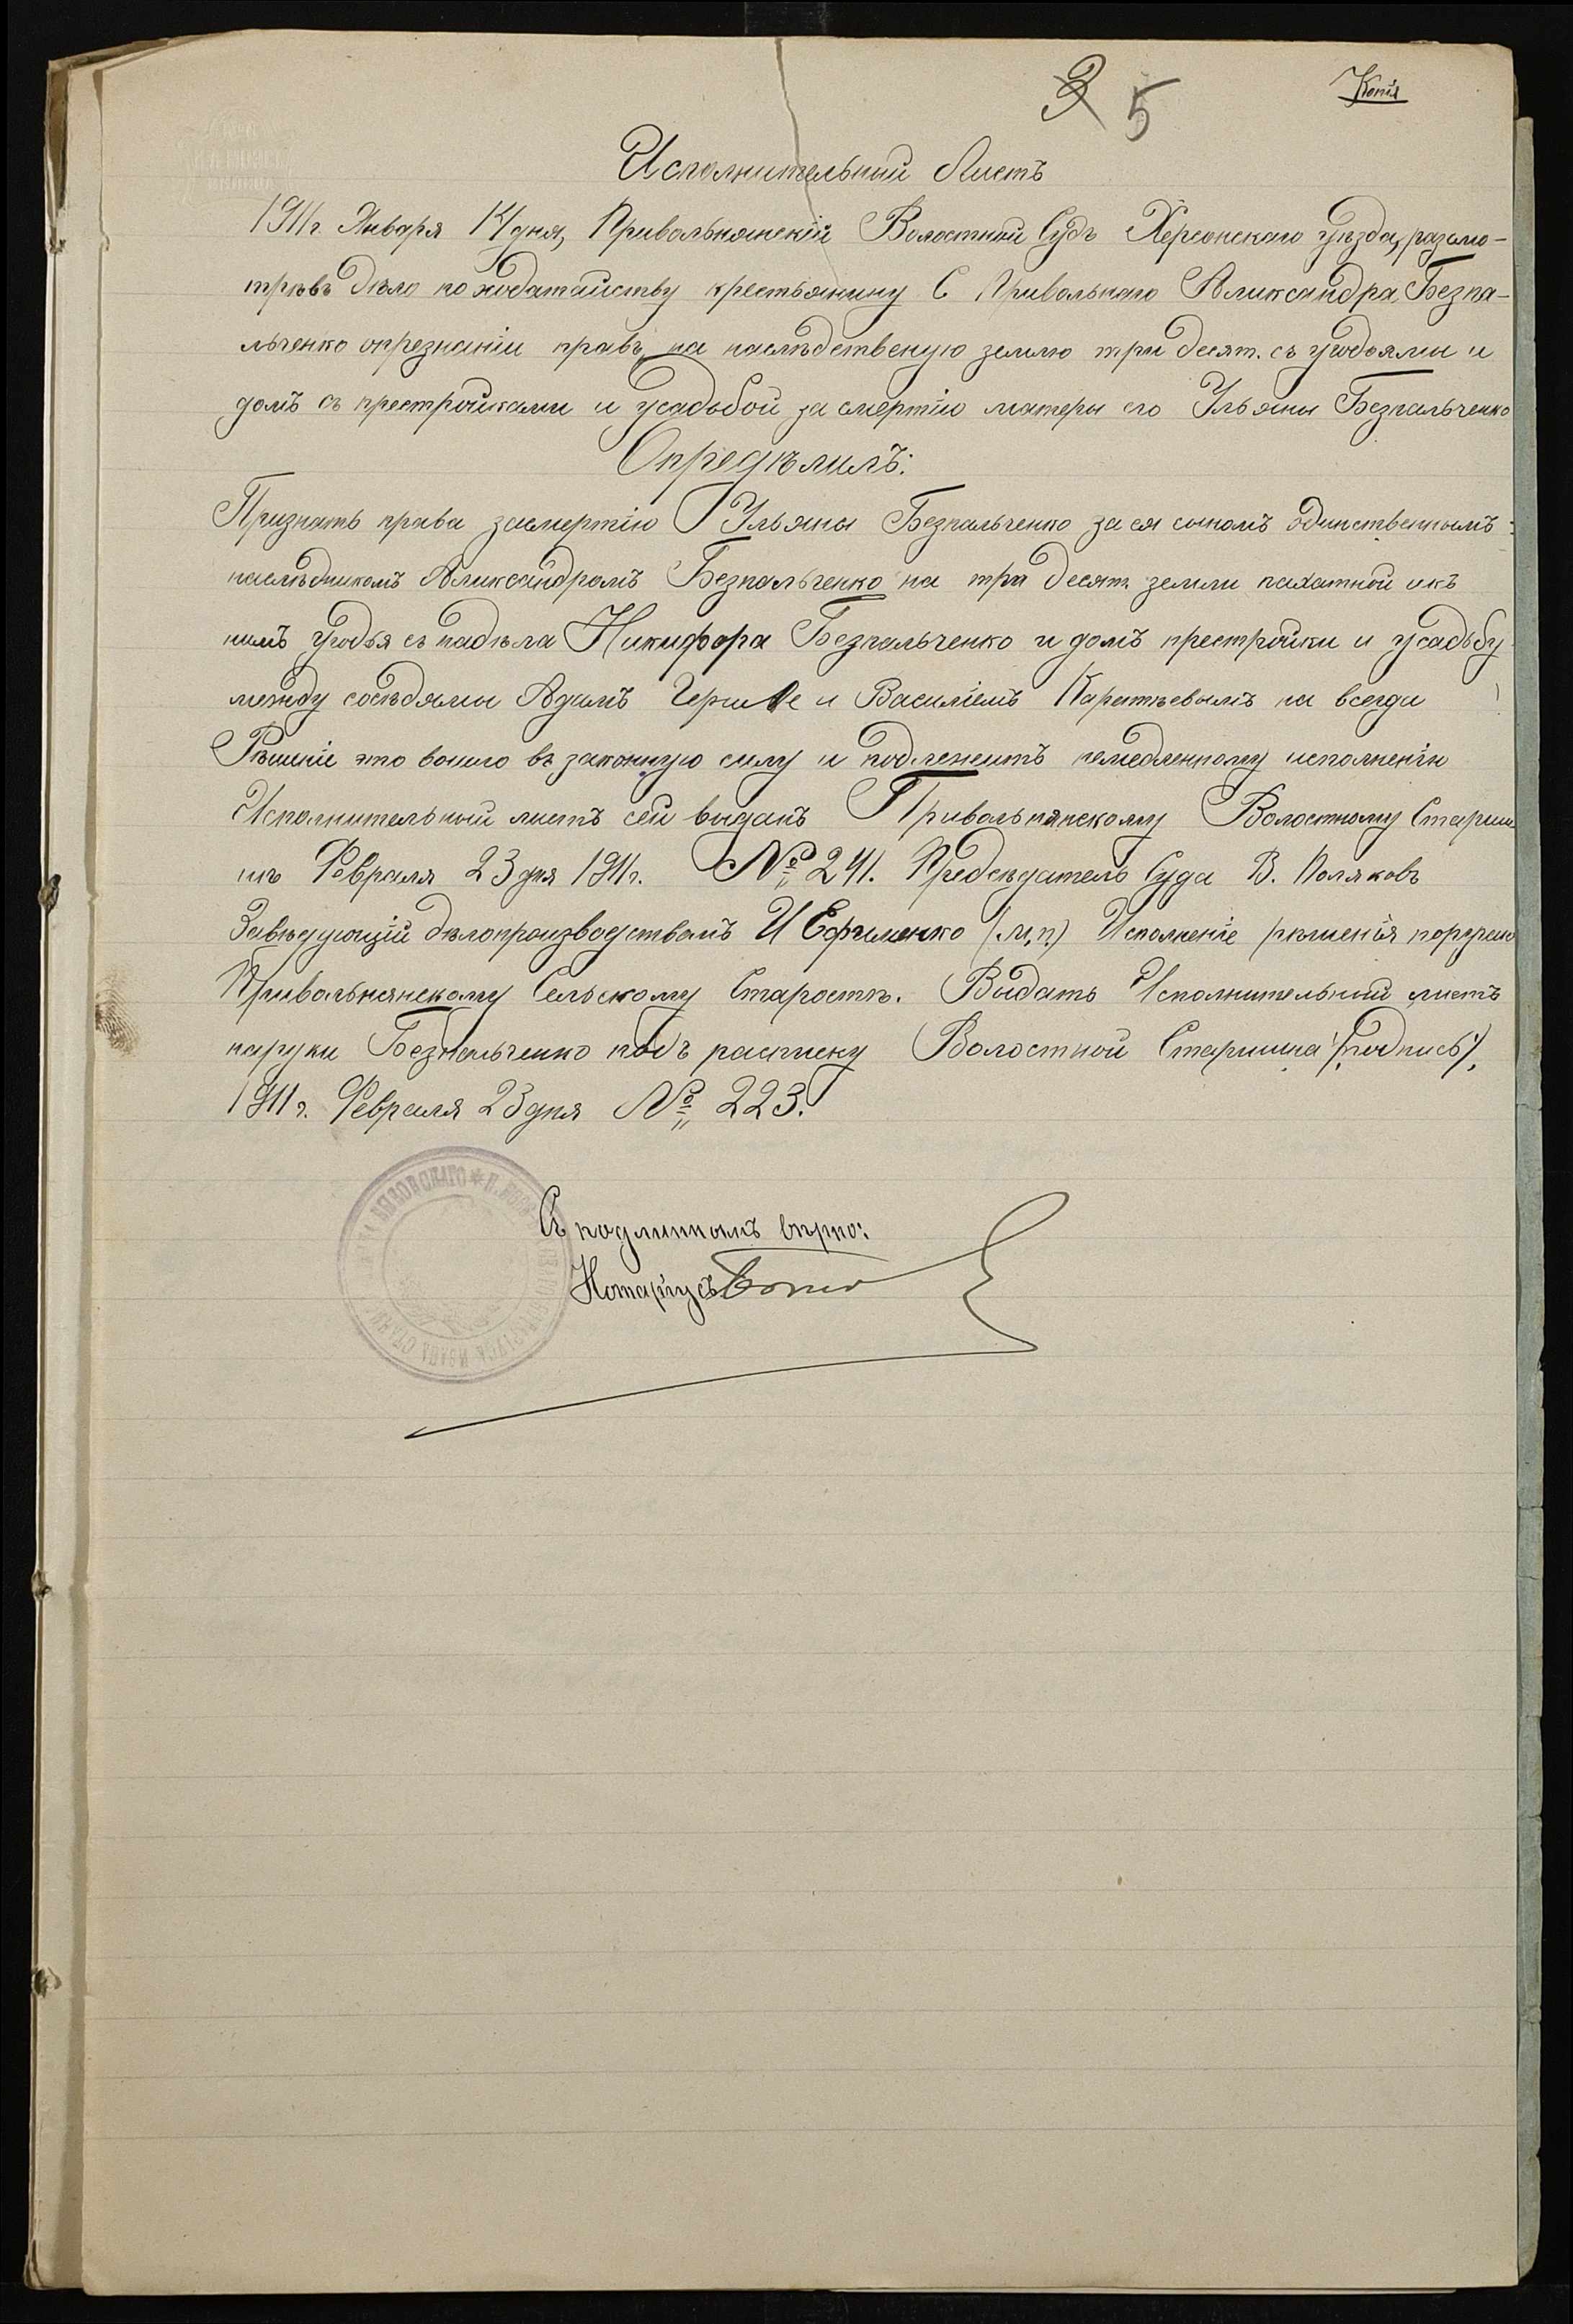 3 5
Копія
Исполнительний Листъ
1911г. Января 14 дня, Привольнянскій Волостний Судъ Херсонскаго уѣзда, разсмо-
трѣвъ дѣло по ходатайству крестьянину С Привольнаго Александра Безпа-
льченко опрезнаніи правъ на наслѣдственую землю три десят. съ угодьями и
домъ съ престройками и усадьбой за смертію матеры его Ульяны Безпальченко
Опредѣлилъ:
Признать права засмертію Ульяны Безпальченко за ея сыномъ эдинственнымъ
наслѣдникомъ Александромъ Безпальченко на три десят. земли пахатной икъ
нимъ угодья съ надѣла Никифора Безпальченко и домъ престройки и усадьбу
между сосѣдями Адамъ и Василіемъ на всегда
Рѣшеніе это вошло въ законную силу и подлежитъ немедленному исполненію
Исполнительний листъ сей выданъ Привольнянскому Волостному Старши
нѣ Февраля 23 дня 1911г. № 241. Предсѣдатель Суда В. Поляковъ
Завѣдующій дѣлопроизводствомъ И Ефименко (м,п.) Исполненіе рѣшенія поручено
Привольнянскому Сельскому Старостѣ. Видать Исполнительний листъ
наруки Безпальченко подъ расписку Волостной Старшина (подпись),
1911г. Февраля 23 дня № 223.
Съ подлиннымъ вѣрно:
Нотаріусъ